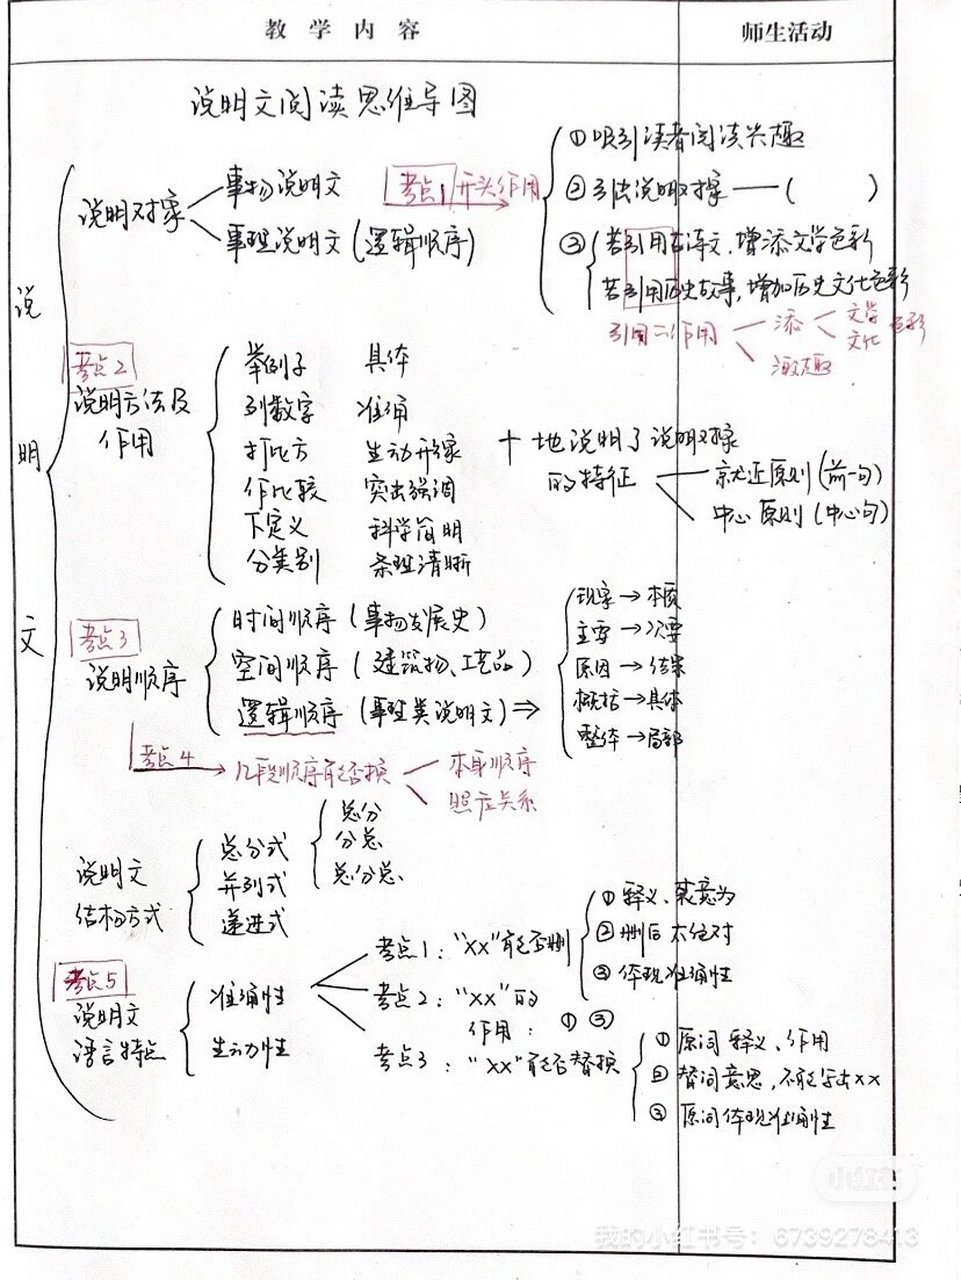 教学内容
师生活动
说明文阅读思维导图
说明文
说明对象
事物说明文
事理说明文（逻辑顺序）
考点1 开头作用
①吸引读者阅读兴趣
②引出说明对象——（ ）
③若引用古诗文，增添文学色彩
若引用历史故事，增加历史文化色彩
引用二作用
添
文学
文化
色彩
激趣
考点2
说明方法及
作用
举例子 具体
列数字 准确
打比方 生动形象
作比较 突出强调
下定义 科学简明
分类别 条理清晰
+地说明了说明对象
的特征
就近原则（前一句）
中心原则（中心句）
考点3
说明顺序
时间顺序（事物发展史）
空间顺序（建筑物、工艺品）
逻辑顺序（事理类说明文）⇒
现象→本质
主要→次要
原因→结果
概括→具体
整体→局部
考点4
几段顺序能否换
本身顺序
照应关系
说明文
结构方式
总分式
并列式
递进式
总分
分总
总分总
考点5
说明文
语言特点
准确性
生动性
考点1："xx"能否删
①释义、表意为
②删后太绝对
③体现准确性
考点2："xx"的
作用：①③
考点3："xx"能否替换
①原词释义、作用
②替词意思，不能写出xx
③原词体现准确性
小红书
我的小红书号：6739278413